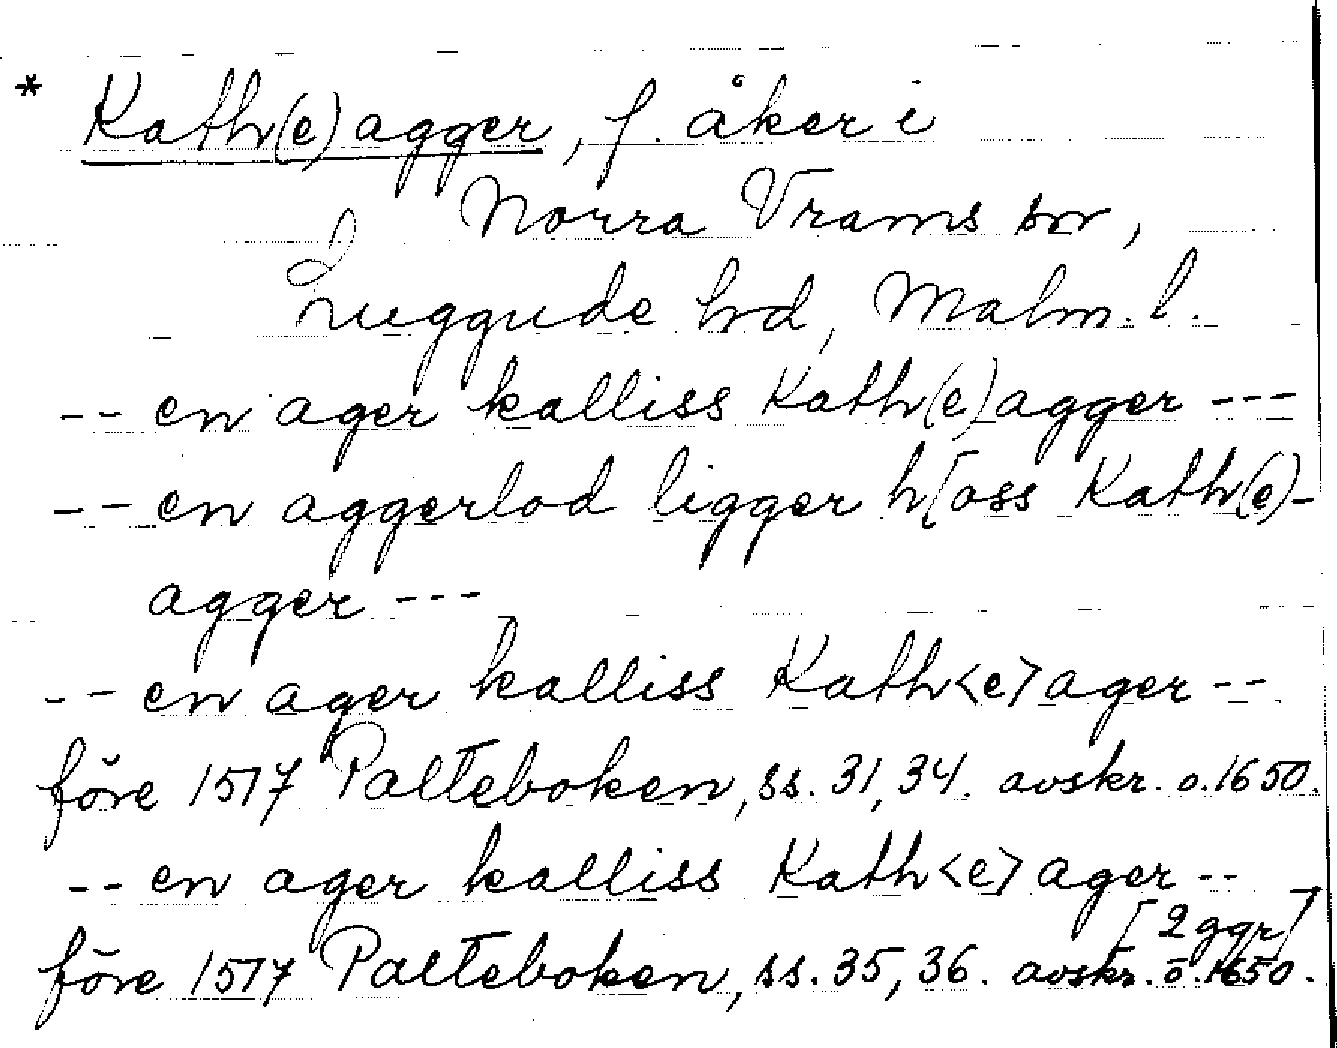 * Kath(e)agger, f. åker i
Norra Vrams sn,
Luggude hd, Malm. l.
-- en ager kalliss Kath(e)agger ---
-- en aggerlod ligger h[oss Kath(e)-
agger ---
-- en ager kalliss Kath<e>ager --
före 1517 Palteboken, ss. 31, 34. avskr. o. 1650.
-- en ager kalliss Kath<e>ager --
[2 ggr]
före 1517 Palteboken, ss. 35, 36. avskr. o. 1650.